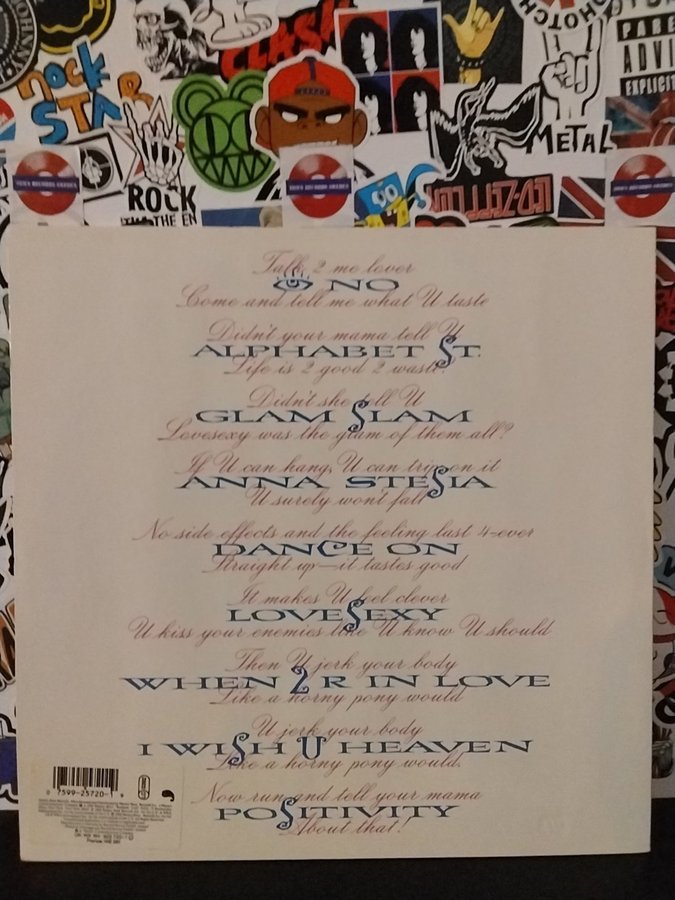 ROCK
STAR
CLASH
PARE
ADVI
EXPLICIT
METAL
ROCK
TILL THE EN
LED-ZEPPELIN
Talk 2 me lover
NO
Come and tell me what U taste
Didn't your mama tell U
ALPHABET ST.
Life is 2 good 2 waste
Didn't she tell U
GLAM SLAM
Lovesexy was the glam of them all?
If U can hang, U can trip on it
ANNA STESIA
U surely won't fall
No side effects and the feeling last 4-ever
DANCE ON
Straight up—it tastes good
It makes U feel clever
LOVESEXY
U kiss your enemies like U know U should
Then U jerk your body
WHEN 2 R IN LOVE
Like a horny pony would
U jerk your body
I WISH U HEAVEN
Like a horny pony would.
Now run and tell your mama
POSITIVITY
About that!
0 7599-25720-1